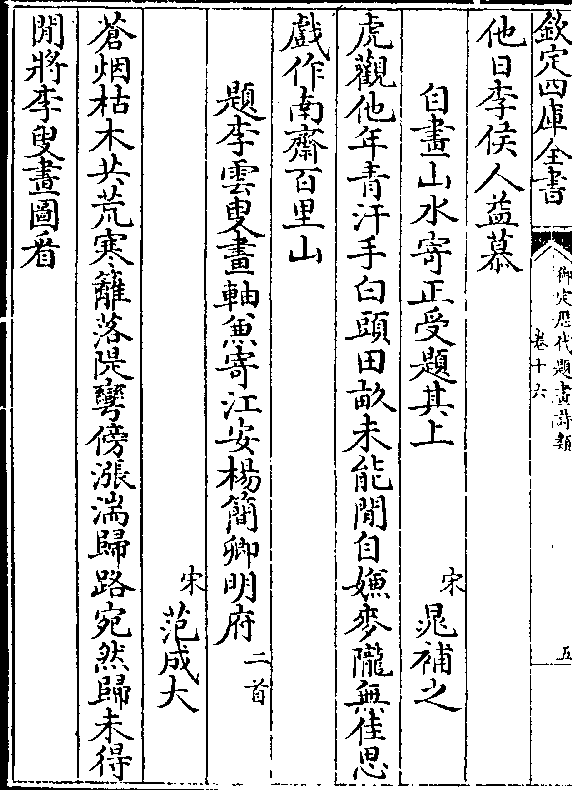 欽定四庫全書
御定歷代題畫詩類
卷十六
五
他日李侯人益慕
自畫山水寄正受題其上
宋
晁補之
虎觀他年青汗手白頭田畝未能閒自嫌麥隴無佳思
戲作南齋百里山
題李雲叟畫軸兼寄江安楊簡卿明府二首
宋
范成大
蒼烟枯木共荒寒籬落隄彎傍漲湍歸路宛然歸未得
閒將李叟畫圖看